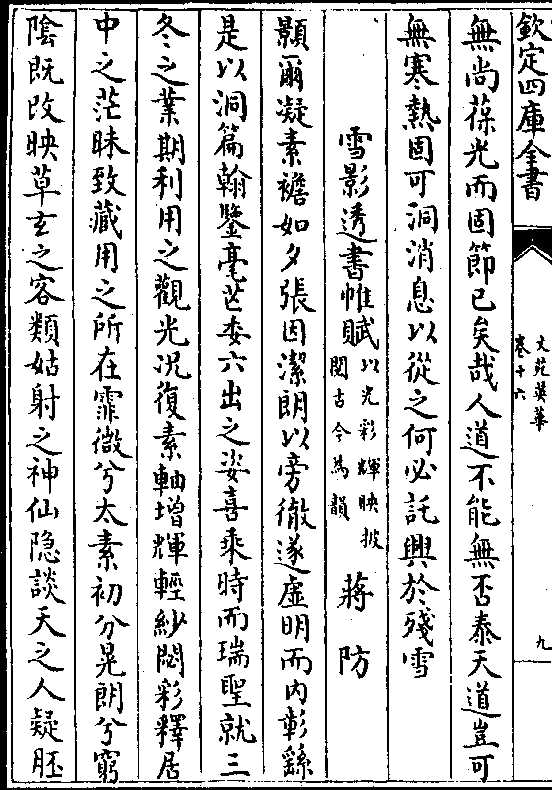 欽定四庫全書
文苑英華
卷十六
九
無尚葆光而固節已矣哉人道不能無否泰天道豈可
無寒熱固可洞消息以從之何必託興於殘雪
雪影透書帷賦以光彩輝映披閱古今為韻 蔣防
顥爾凝素襜如夕張因潔朗以旁徹遂虛明而內彰繇
是以洞篇翰鑒毫芒委六出之姿喜乘時而瑞聖就三
冬之業期利用之觀光况復素軸增輝輕紗閟彩釋居
中之茫昧致藏用之所在霏微兮太素初分晃朗兮窮
陰既改映草玄之客類姑射之神仙隠談天之人疑胚